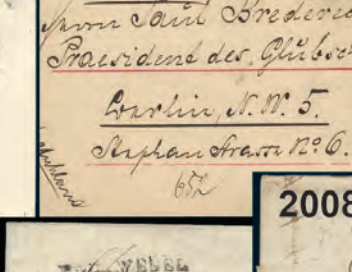 Herrn Paul Brederec
Praesident des Glübsc
Berlin, N. W. 5.
Stephan Strasse No 6.
652
2008